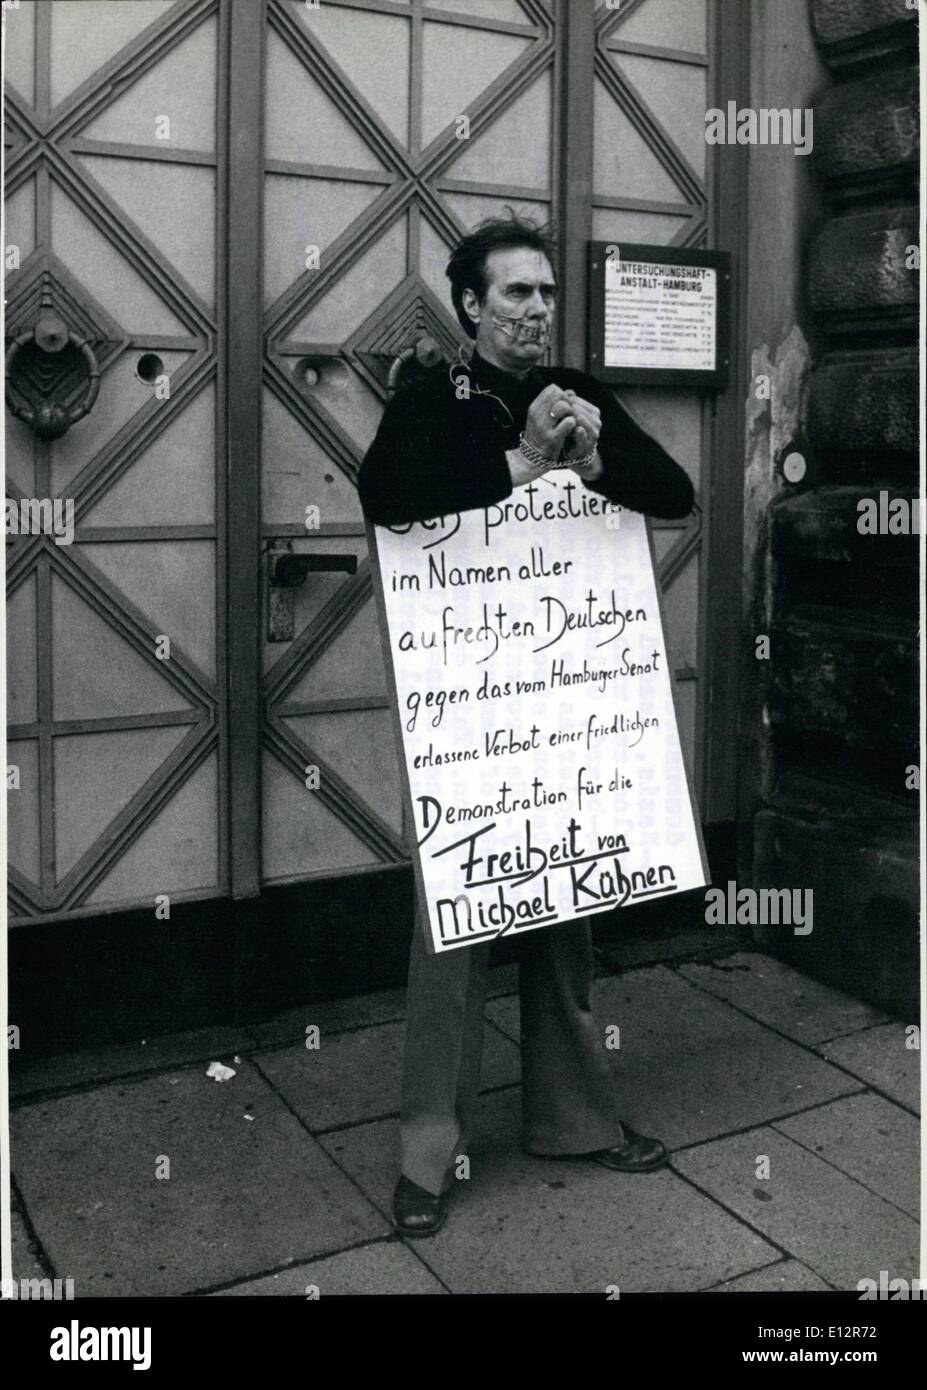 UNTERSUCHUNGSHAFT-
ANSTALT-HAMBURG
Ich protestiere
im Namen aller
aufrechten Deutschen
gegen das vom Hamburger Senat
erlassene Verbot einer friedlichen
Demonstration für die
Freiheit von
Michael Kühnen
alamy
a
alamy
a
alamy
alamy
Image ID: E12R72
www.alamy.com